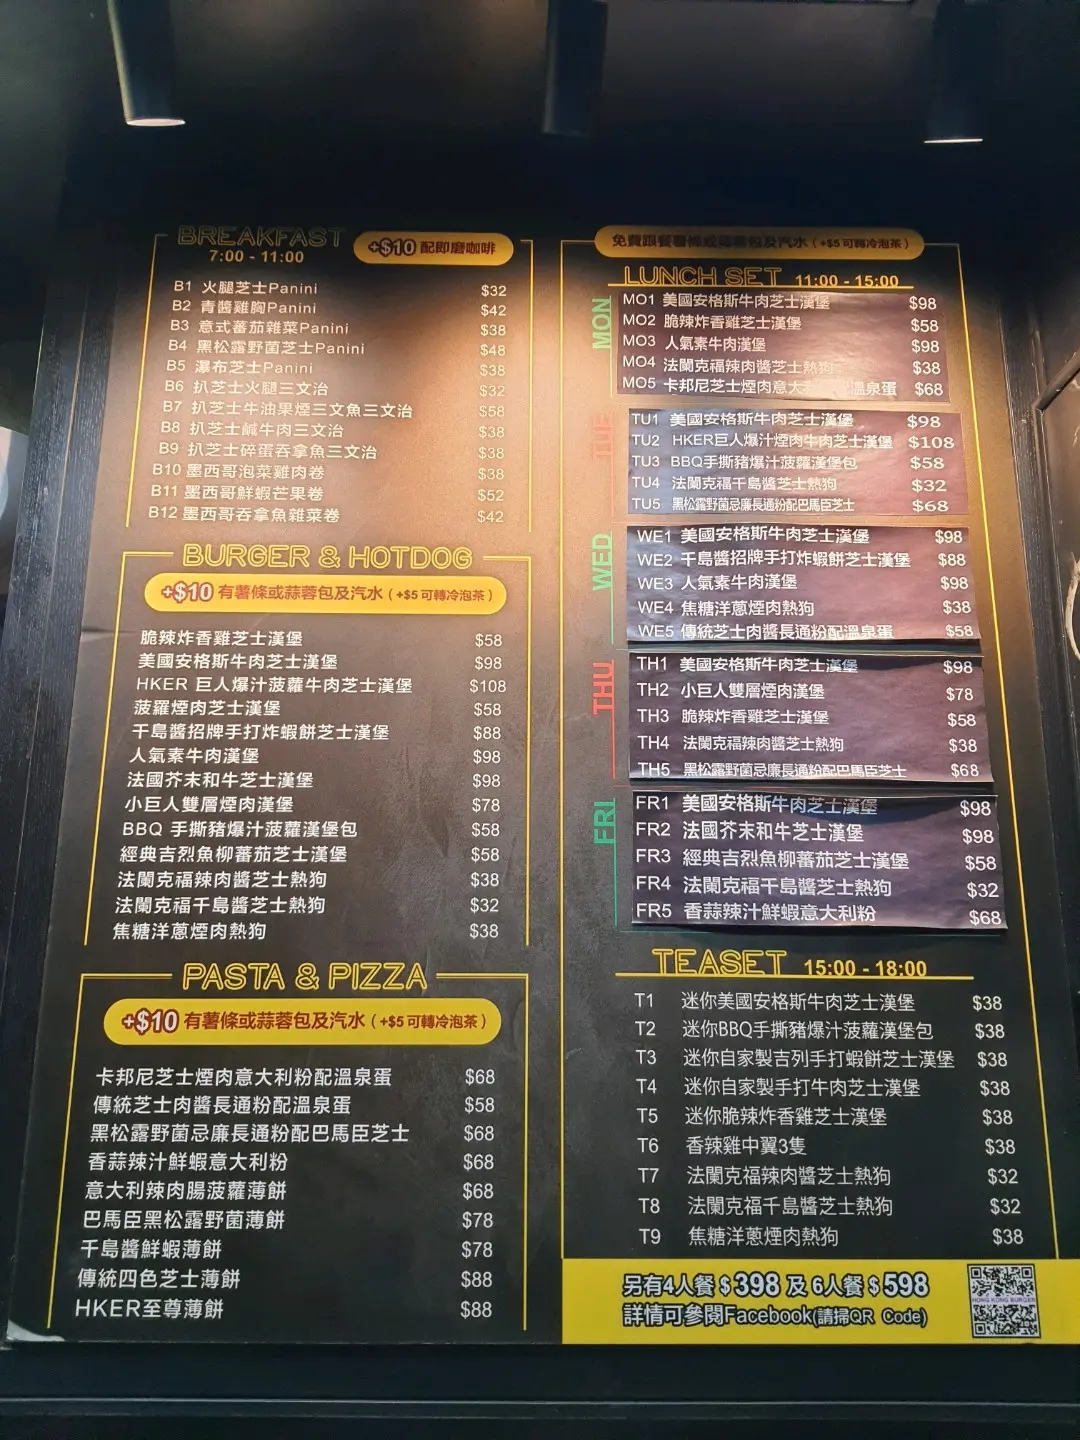 BREAKFAST
7:00 - 11:00
+$10 配即磨咖啡
B1 火腿芝士Panini $32
B2 青醬雞胸Panini $42
B3 意式蕃茄雜菜Panini $38
B4 黑松露野菌芝士Panini $48
B5 瀑布芝士Panini $38
B6 扒芝士火腿三文治 $32
B7 扒芝士牛油果煙三文魚三文治 $58
B8 扒芝士鹹牛肉三文治 $38
B9 扒芝士碎蛋吞拿魚三文治 $38
B10 墨西哥泡菜雞肉卷 $38
B11 墨西哥鮮蝦芒果卷 $52
B12 墨西哥吞拿魚雜菜卷 $42
BURGER & HOTDOG
+$10 有薯條或蒜蓉包及汽水 (+$5 可轉冷泡茶)
脆辣炸香雞芝士漢堡 $58
美國安格斯牛肉芝士漢堡 $98
HKER 巨人爆汁菠蘿牛肉芝士漢堡 $108
菠羅煙肉芝士漢堡 $58
千島醬招牌手打炸蝦餅芝士漢堡 $88
人氣素牛肉漢堡 $98
法國芥末和牛芝士漢堡 $98
小巨人雙層煙肉漢堡 $78
BBQ 手撕豬爆汁菠蘿漢堡包 $58
經典吉烈魚柳蕃茄芝士漢堡 $58
法蘭克福辣肉醬芝士熱狗 $38
法蘭克福千島醬芝士熱狗 $32
焦糖洋蔥煙肉熱狗 $38
PASTA & PIZZA
+$10 有薯條或蒜蓉包及汽水 (+$5 可轉冷泡茶)
卡邦尼芝士煙肉意大利粉配溫泉蛋 $68
傳統芝士肉醬長通粉配溫泉蛋 $58
黑松露野菌忌廉長通粉配巴馬臣芝士 $68
香蒜辣汁鮮蝦意大利粉 $68
意大利辣肉腸菠蘿薄餅 $68
巴馬臣黑松露野菌薄餅 $78
千島醬鮮蝦薄餅 $78
傳統四色芝士薄餅 $88
HKER至尊薄餅 $88
免費跟餐薯條或蒜蓉包及汽水 (+$5 可轉冷泡茶)
LUNCH SET 11:00 - 15:00
MON
MO1 美國安格斯牛肉芝士漢堡 $98
MO2 脆辣炸香雞芝士漢堡 $58
MO3 人氣素牛肉漢堡 $98
MO4 法蘭克福辣肉醬芝士熱狗 $38
MO5 卡邦尼芝士煙肉意大 溫泉蛋 $68
TUE
TU1 美國安格斯牛肉芝士漢堡 $98
TU2 HKER巨人爆汁煙肉牛肉芝士漢堡 $108
TU3 BBQ手撕豬爆汁菠蘿漢堡包 $58
TU4 法蘭克福千島醬芝士熱狗 $32
TU5 黑松露野菌忌廉長通粉配巴馬臣芝士 $68
WED
WE1 美國安格斯牛肉芝士漢堡 $98
WE2 千島醬招牌手打炸蝦餅芝士漢堡 $88
WE3 人氣素牛肉漢堡 $98
WE4 焦糖洋蔥煙肉熱狗 $38
WE5 傳統芝士肉醬長通粉配溫泉蛋 $58
THU
TH1 美國安格斯牛肉芝士漢堡 $98
TH2 小巨人雙層煙肉漢堡 $78
TH3 脆辣炸香雞芝士漢堡 $58
TH4 法蘭克福辣肉醬芝士熱狗 $38
TH5 黑松露野菌忌廉長通粉配巴馬臣芝士 $68
FRI
FR1 美國安格斯牛肉芝士漢堡 $98
FR2 法國芥末和牛芝士漢堡 $98
FR3 經典吉烈魚柳蕃茄芝士漢堡 $58
FR4 法蘭克福千島醬芝士熱狗 $32
FR5 香蒜辣汁鮮蝦意大利粉 $68
TEASET 15:00 - 18:00
T1 迷你美國安格斯牛肉芝士漢堡 $38
T2 迷你BBQ手撕豬爆汁菠蘿漢堡包 $38
T3 迷你自家製吉列手打蝦餅芝士漢堡 $38
T4 迷你自家製手打牛肉芝士漢堡 $38
T5 迷你脆辣炸香雞芝士漢堡 $38
T6 香辣雞中翼3隻 $38
T7 法蘭克福辣肉醬芝士熱狗 $32
T8 法蘭克福千島醬芝士熱狗 $32
T9 焦糖洋蔥煙肉熱狗 $38
另有4人餐 $398 及 6人餐 $598
詳情可參閱Facebook(請掃QR Code)
HONG KONG BURGER